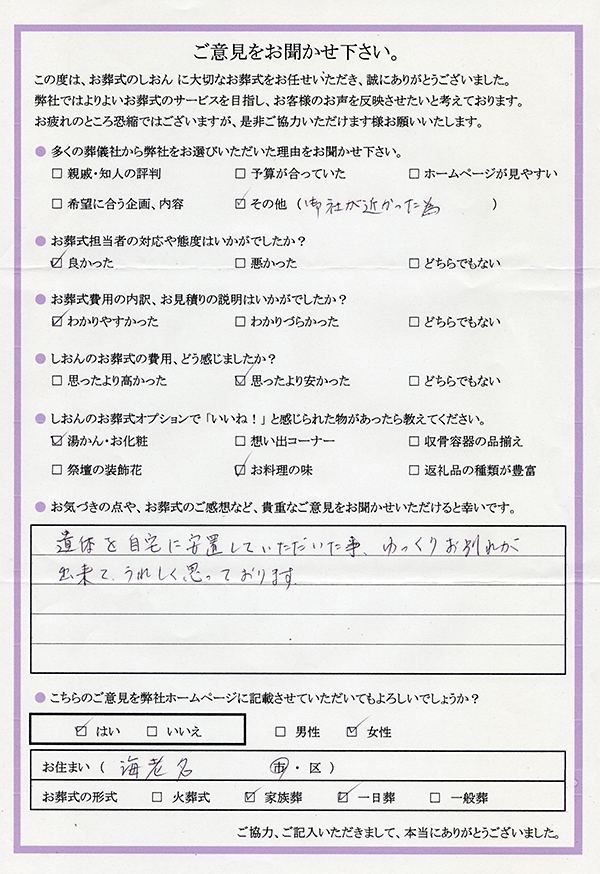 ご意見をお聞かせ下さい。
この度は、お葬式のしおん に大切なお葬式をお任せいただき、誠にありがとうございました。
弊社ではよりよいお葬式のサービスを目指し、お客様のお声を反映させたいと考えております。
お疲れのところ恐縮ではございますが、是非ご協力いただけます様お願いいたします。
● 多くの葬儀社から弊社をお選びいただいた理由をお聞かせ下さい。
□ 親戚・知人の評判 □ 予算が合っていた □ ホームページが見やすい
□ 希望に合う企画、内容 ☑ その他 (御社が近かった為)
● お葬式担当者の対応や態度はいかがでしたか？
☑ 良かった □ 悪かった □ どちらでもない
● お葬式費用の内訳、お見積りの説明はいかがでしたか？
☑ わかりやすかった □ わかりづらかった □ どちらでもない
● しおんのお葬式の費用、どう感じましたか？
□ 思ったより高かった ☑ 思ったより安かった □ どちらでもない
● しおんのお葬式オプションで「いいね！」と感じられた物があったら教えてください。
☑ 湯かん・お化粧 □ 想い出コーナー □ 収骨容器の品揃え
□ 祭壇の装飾花 ☑ お料理の味 □ 返礼品の種類が豊富
● お気づきの点や、お葬式のご感想など、貴重なご意見をお聞かせいただけると幸いです。
遺体を自宅に安置していただいた事、ゆっくりお別れが
出来て、うれしく思っております。
● こちらのご意見を弊社ホームページに記載させていただいてもよろしいでしょうか？
☑ はい □ いいえ □ 男性 ☑ 女性
お住まい ( 海老名 市・区 )
お葬式の形式 □ 火葬式 ☑ 家族葬 ☑ 一日葬 □ 一般葬
ご協力、ご記入いただきまして、本当にありがとうございました。